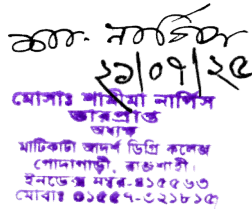 ২১|০৭|২৫
মোসাঃ শামীমা নার্গিস
ভারপ্রাপ্ত
অধ্যক্ষ
মাটিকাটা আদর্শ ডিগ্রি কলেজ
গোদাগাড়ী, রাজশাহী।
ইনডেক্স নম্বর-৪১৫৫৬৩
মোবাঃ ০১৫৫৭-৩২১৮১৫